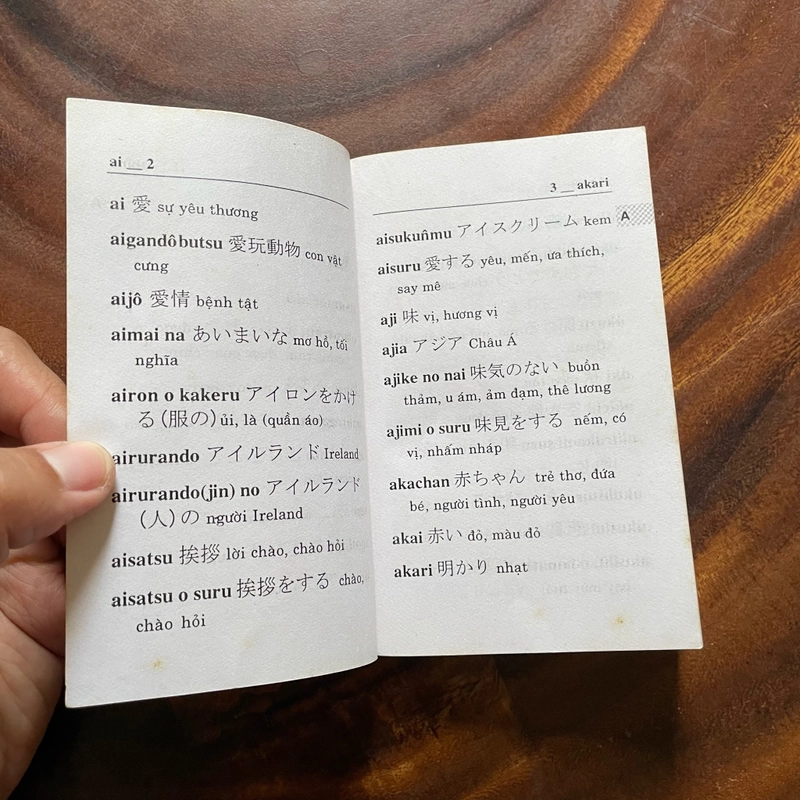 ai __ 2
ai 愛 sự yêu thương
aigandôbutsu 愛玩動物 con vật
cưng
aijô 愛情 bệnh tật
aimai na あいまいな mơ hồ, tối
nghĩa
airon o kakeru アイロンをかけ
る (服の) ủi, là (quần áo)
airurando アイルランド Ireland
airurando(jin) no アイルランド
(人) の người Ireland
aisatsu 挨拶 lời chào, chào hỏi
aisatsu o suru 挨拶をする chào,
chào hỏi
3 __ akari
A
aisukuñmu アイスクリーム kem
aisuru 愛する yêu, mến, ưa thích,
say mê
aji 味 vị, hương vị
ajia アジア Châu Á
ajike no nai 味気のない buồn
thảm, u ám, ảm đạm, thê lương
ajimi o suru 味見をする nếm, có
vị, nhấm nháp
akachan 赤ちゃん trẻ thơ, đứa
bé, người tình, người yêu
akai 赤い đỏ, màu đỏ
akari 明かり nhạt